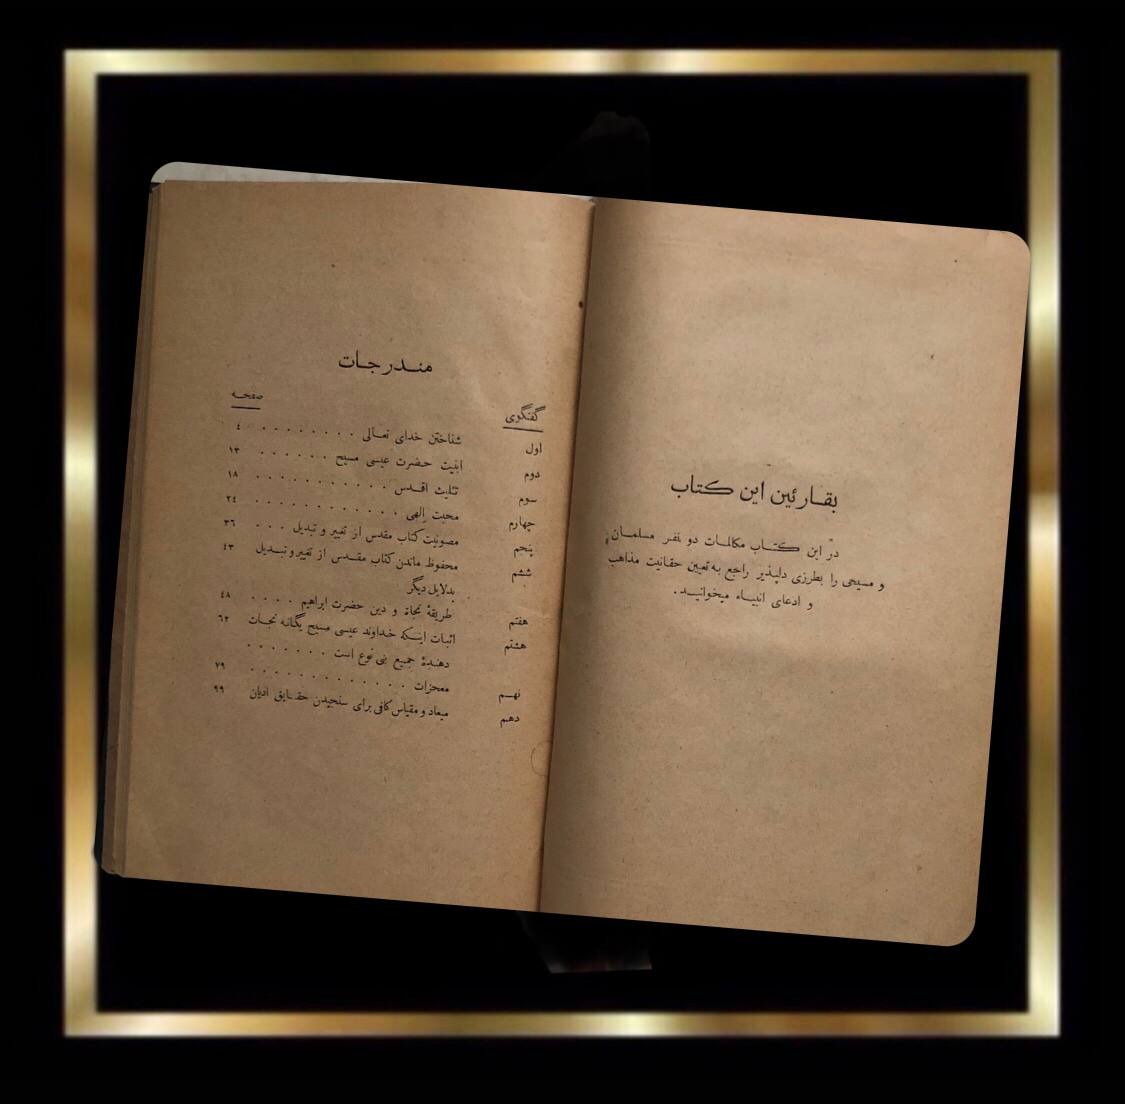 بقارئین این کتاب
در این کتاب مکالمات دو نفر مسلمان
و مسیحی را بطرزی دلپذیر راجع به تعیین حقانیت مذاهب
و ادعای انبیاء میخوانید.
مندرجات
گفتگوی صفحه
اول شناختن خدای تعالی . . . . . . . . ٤
دوم ابنیت حضرت عیسی مسیح . . . . . . ١٣
سوم تثلیث اقدس . . . . . . . . . . . ١٨
چهارم محبت اِلهی . . . . . . . . . . ٢٤
پنجم مصونیت کتاب مقدس از تغیر و تبدیل . . . ٣٦
ششم محفوظ ماندن کتاب مقدس از تغیر و تبدیل ٤٣
بدلایل دیگر
هفتم طریقهٔ نجاة و دین حضرت ابراهیم . . . . ٤٨
هشتم اثبات اینکه خداوند عیسی مسیح یگانه نجات ٦٢
دهندهٔ جمیع بنی نوع است . . . . . . .
نهم معجزات . . . . . . . . . . . . ٧٩
دهم میعاد و مقیاس کافی برای سنجیدن حقایق ادیان ٩٩